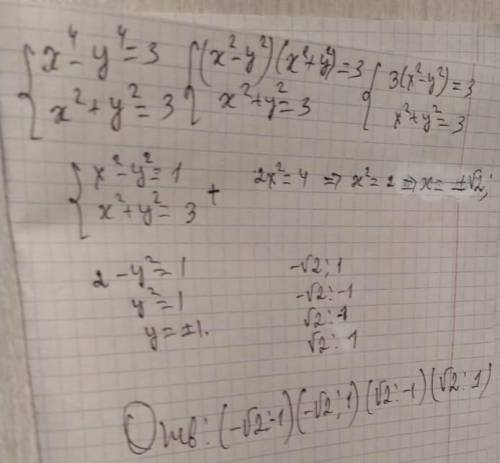 x⁴ - y⁴ = 3
x² + y² = 3
(x² - y²)(x² + y²) = 3
x² + y² = 3
3(x² - y²) = 3
x² + y² = 3
x² - y² = 1
x² + y² = 3 +
2x² = 4 ⇒ x² = 2 ⇒ x = ±√2;
2 - y² = 1
y² = 1
y = ±1.
-√2; 1
-√2; -1
√2; -1
√2; 1
Отв: (-√2; -1) (-√2; 1) (√2; -1) (√2; 1)